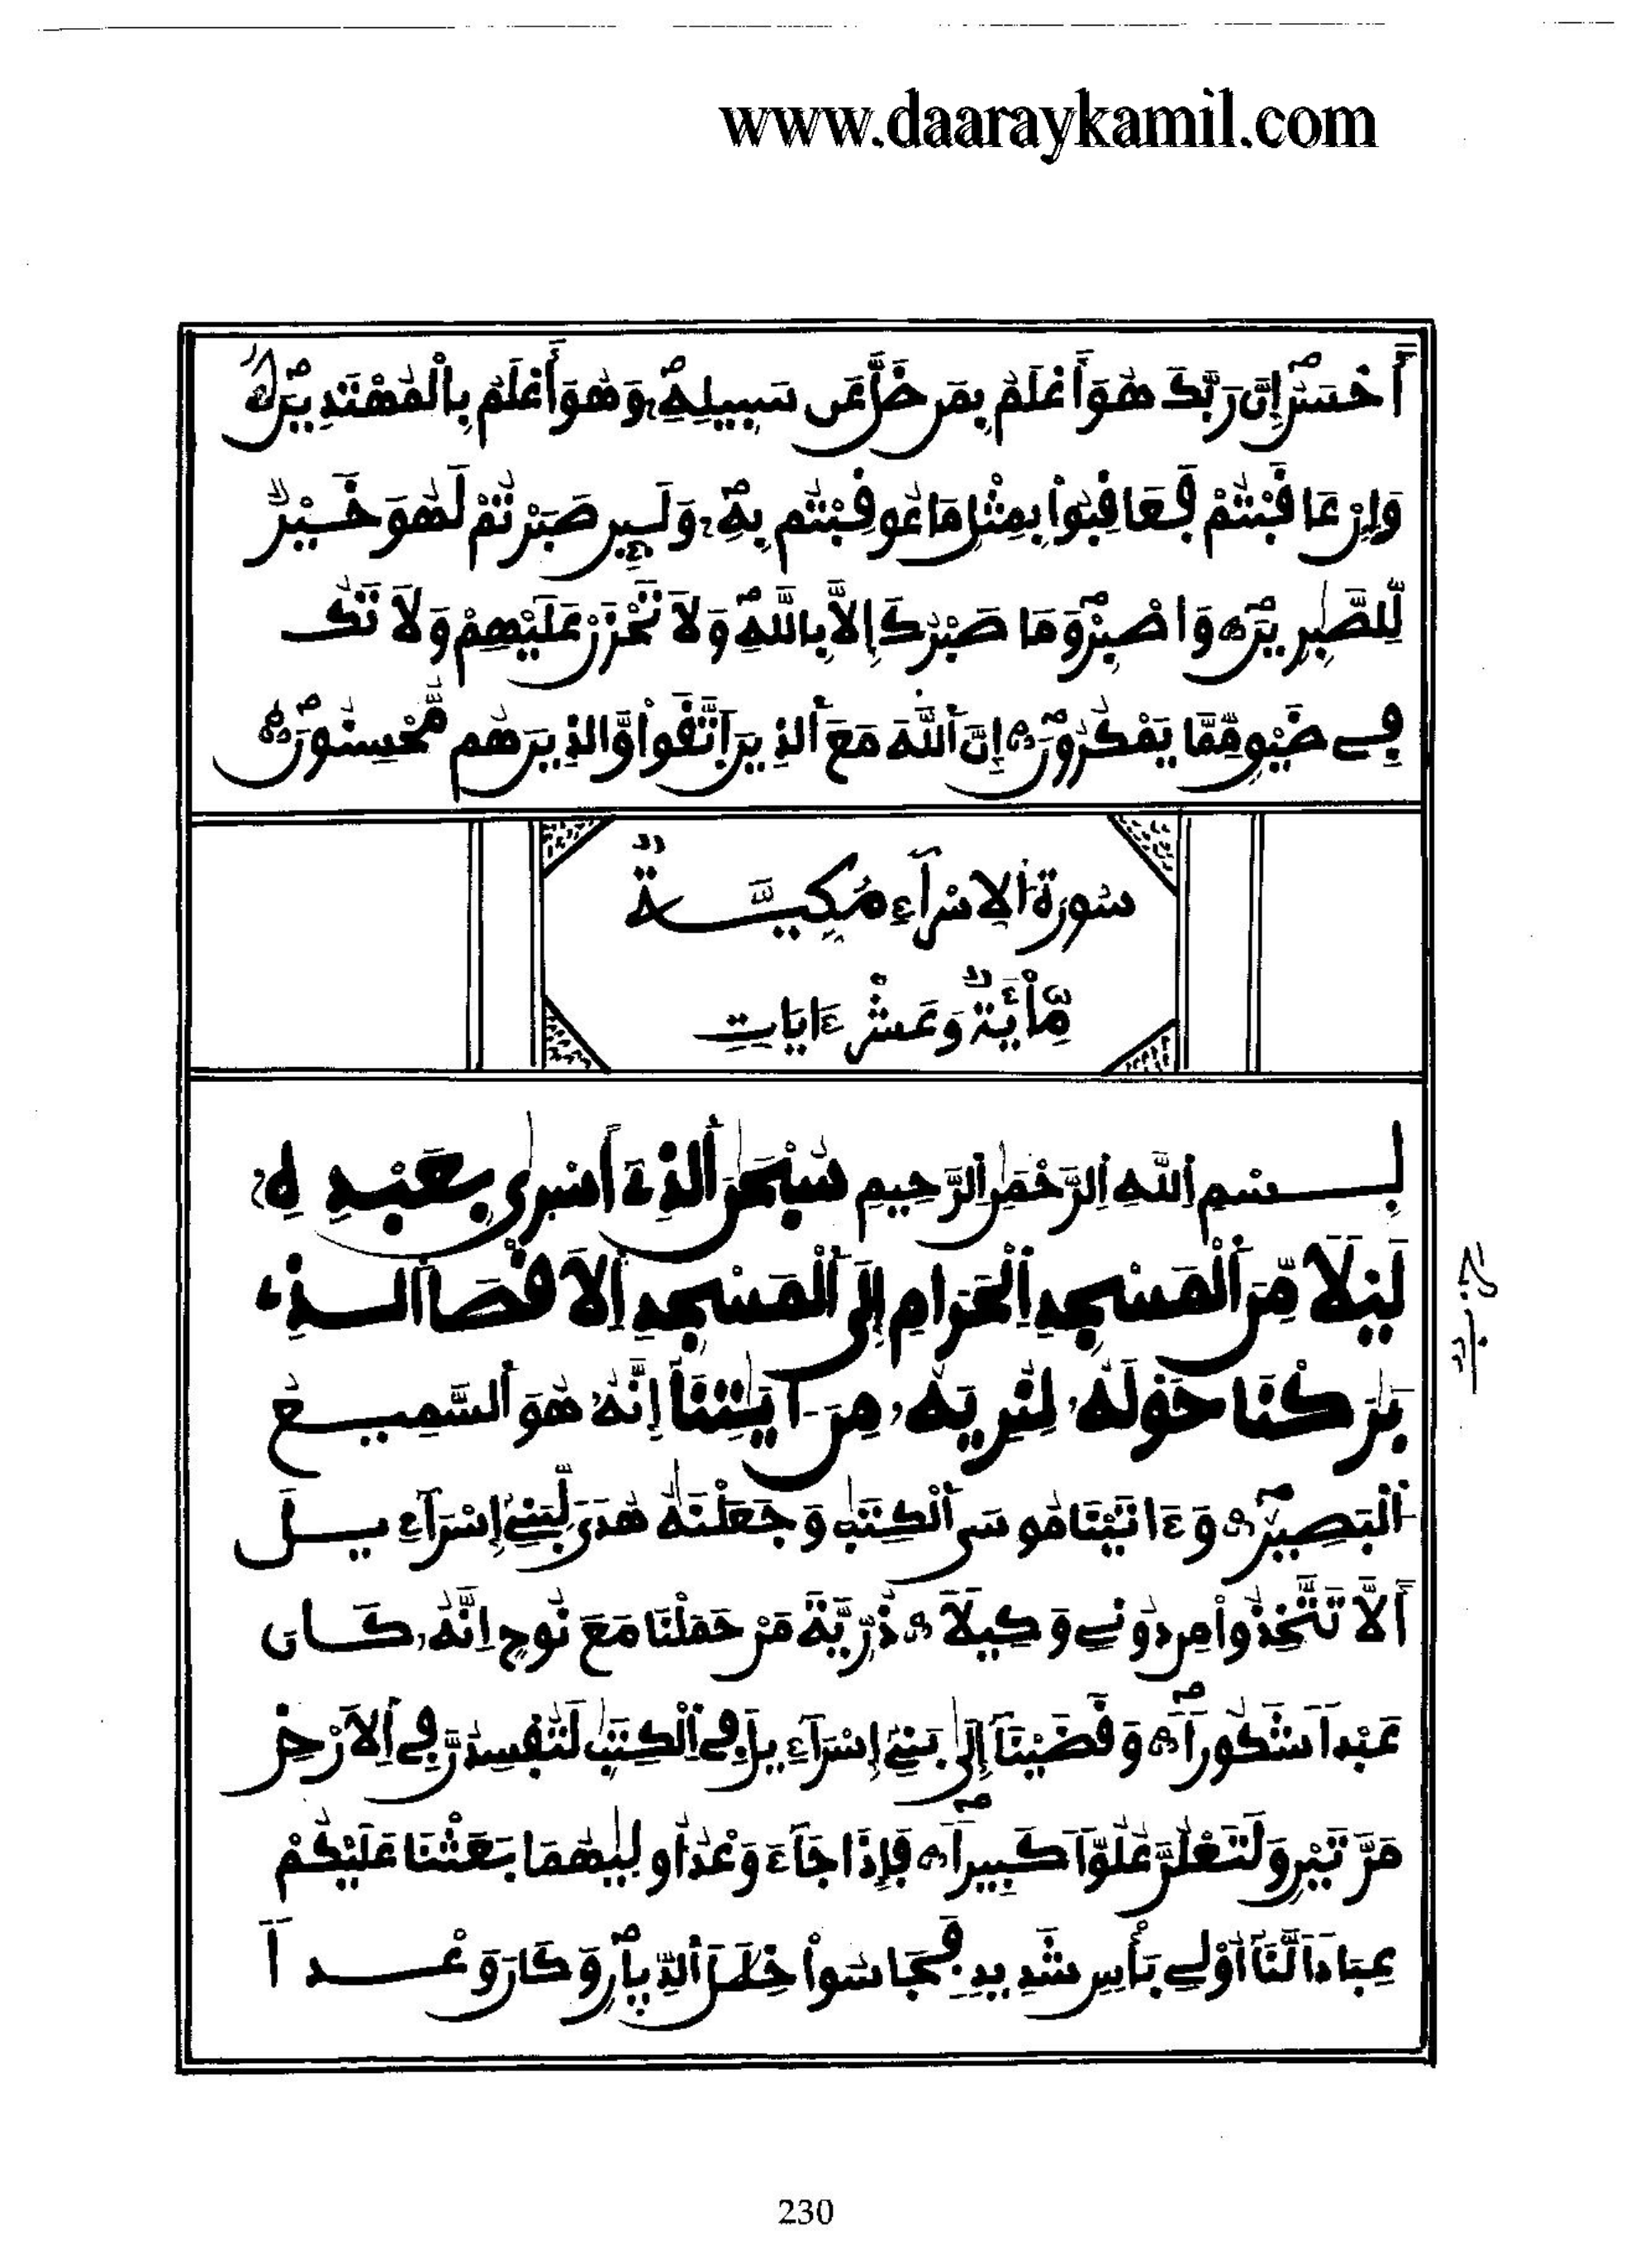 www.daaraykamil.com
أَحْسَنُ إِنَّ رَبَّكَ هُوَ أَعْلَمُ بِمَن ضَلَّ عَن سَبِيلِهِ وَهُوَ أَعْلَمُ بِالْمُهْتَدِينَ
وَإِنْ عَاقَبْتُمْ فَعَاقِبُوا بِمِثْلِ مَا عُوقِبْتُم بِهِ وَلَئِن صَبَرْتُمْ لَهُوَ خَيْرٌ
لِّلصَّٰبِرِينَ وَاصْبِرْ وَمَا صَبْرُكَ إِلَّا بِاللَّهِ وَلَا تَحْزَنْ عَلَيْهِمْ وَلَا تَكُ
فِي ضَيْقٍ مِّمَّا يَمْكُرُونَ إِنَّ اللَّهَ مَعَ الَّذِينَ اتَّقَوا وَّالَّذِينَ هُم مُّحْسِنُونَ
سُورَةُ الْإِسْرَآءِ مَكِّيَّةٌ
مِّاْئَةٌ وَعَشْرُ ءَايَاتٍ
بِسْمِ اللَّهِ الرَّحْمَٰنِ الرَّحِيمِ سُبْحَٰنَ الَّذِي أَسْرَىٰ بِعَبْدِهِ
لَيْلًا مِّنَ الْمَسْجِدِ الْحَرَامِ إِلَى الْمَسْجِدِ الْأَقْصَا الَّذِي
بَٰرَكْنَا حَوْلَهُ لِنُرِيَهُ مِنَ ايَٰتِنَا إِنَّهُ هُوَ السَّمِيعُ
الْبَصِيرُ وَءَاتَيْنَا مُوسَى الْكِتَٰبَ وَجَعَلْنَٰهُ هُدًى لِّبَنِي إِسْرَآءِيلَ
أَلَّا تَتَّخِذُوا مِن دُونِي وَكِيلًا ذُرِّيَّةَ مَنْ حَمَلْنَا مَعَ نُوحٍ اِنَّهُ كَانَ
عَبْدًا شَكُورًا وَقَضَيْنَا إِلَىٰ بَنِي إِسْرَآءِيلَ فِي الْكِتَٰبِ لَتُفْسِدُنَّ فِي الْأَرْضِ
مَرَّتَيْنِ وَلَتَعْلُنَّ عُلُوًّا كَبِيرًا فَإِذَا جَآءَ وَعْدُ أُولَىٰهُمَا بَعَثْنَا عَلَيْكُمْ
عِبَادًا لَّنَا أُوْلِي بَأْسٍ شَدِيدٍ فَجَاسُوا خِلَٰلَ الدِّيَارِ وَكَانَ وَعْدًا
230